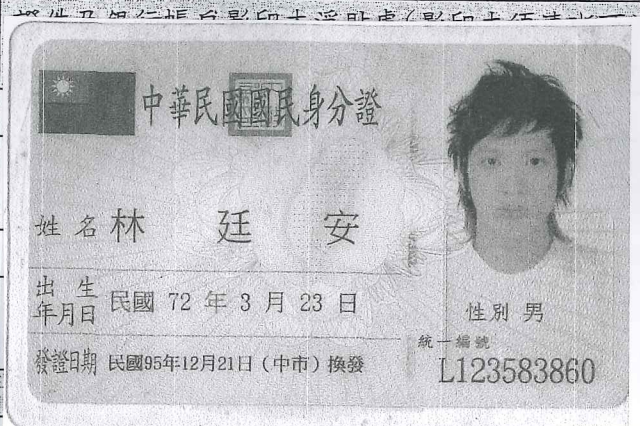 中華民國國民身分證
姓名 林廷安
出生年月日 民國 72 年 3 月 23 日
性別 男
發證日期 民國95年12月21日（中市）換發
統一編號
L123583860